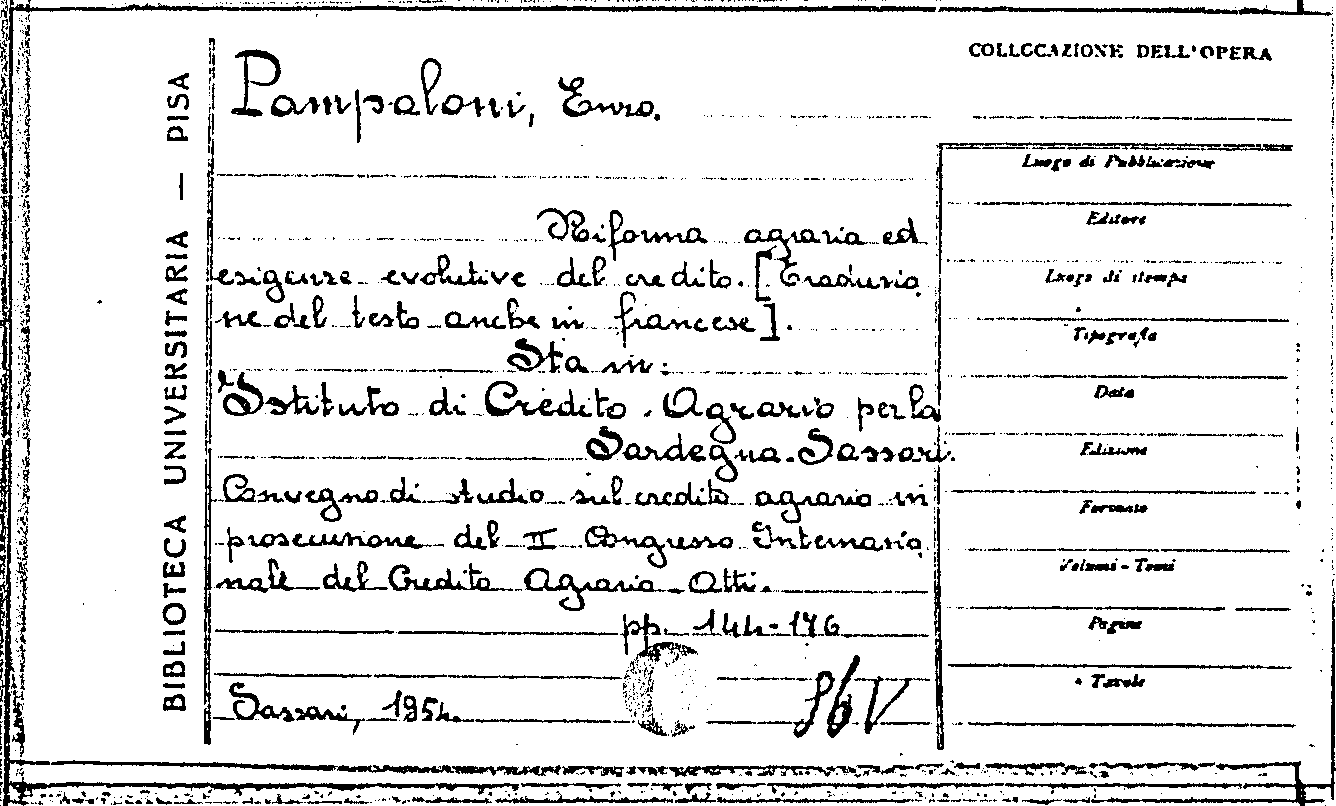 BIBLIOTECA UNIVERSITARIA — PISA
Pampaloni, Enzo.
Riforma agraria ed
esigenze evolutive del credito. [Traduzio
ne del testo anche in francese].
Sta in:
Istituto di Credito Agrario per la
Sardegna. Sassari.
Convegno di studio sul credito agrario in
prosecuzione del II Congresso Internazio
nale del Credito Agrario. Atti.
pp. 144-176
Sassari, 1954.
COLLOCAZIONE DELL'OPERA
Luogo di Pubblicazione
Editore
Luogo di stampa
Tipografia
Data
Edizione
Formato
Volumi - Tomi
Pagine
Tavole